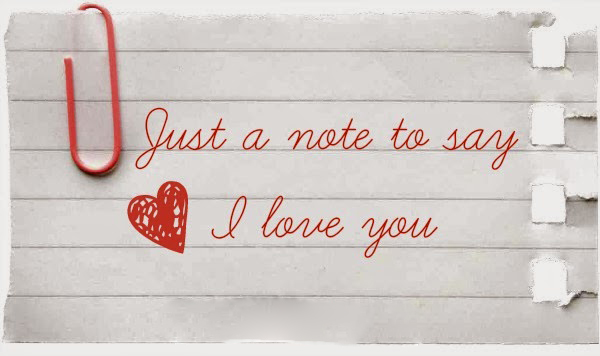 Just a note to say
I love you